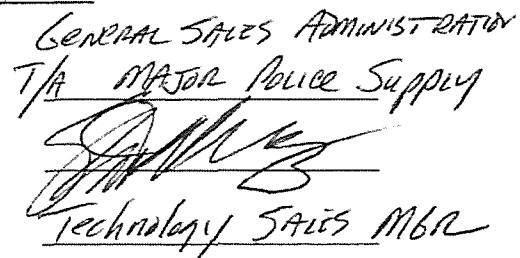 GENERAL SALES ADMINISTRATION
T/A MAJOR POLICE SUPPLY
Technology SALES MGR